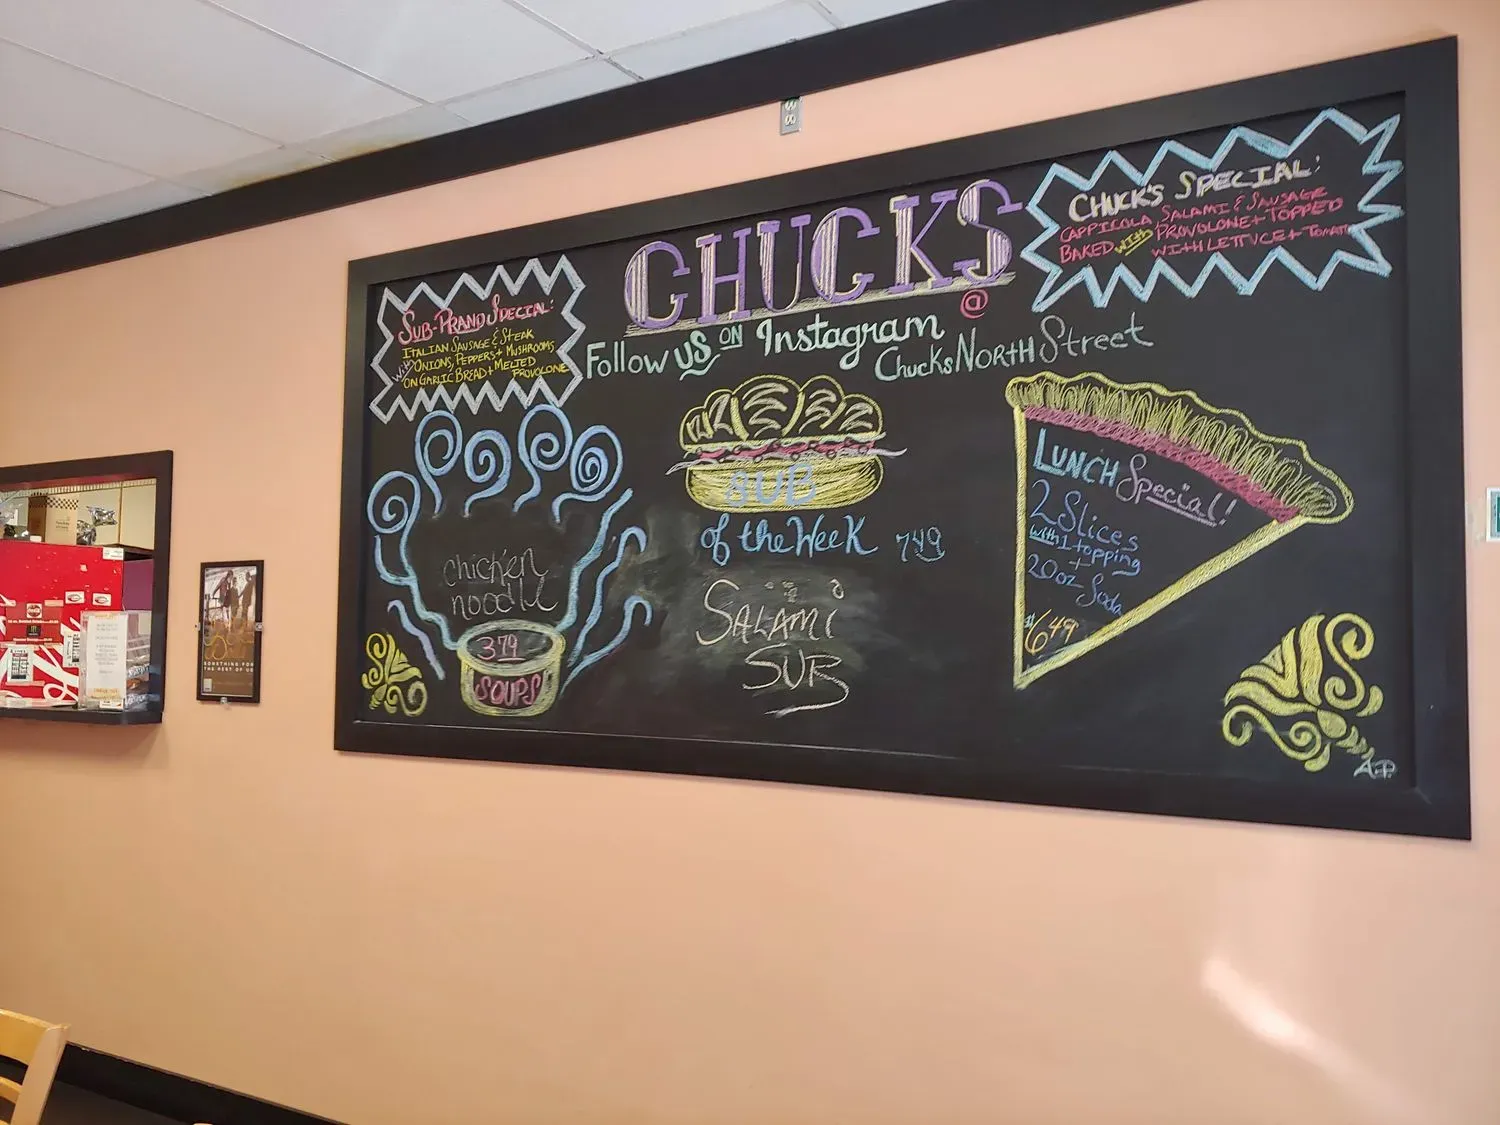 CHUCKS
@
Follow us ON Instagram
ChucksNORTHStreet
SUB-PRANO SPECIAL:
ITALIAN SAUSAGE & STEAK
With ONIONS, PEPPERS + MUSHROOMS
ON GARLIC BREAD + MELTED
PROVOLONE
CHUCK'S SPECIAL:
CAPPICOLA, SALAMI & SAUSAGE
BAKED with PROVOLONE + TOPPED
WITH LETTUCE + TOMATO
chicken
noodle
3.79
SOUPS!
SUB
of the Week 749
SALAMI
SUB
LUNCH Special!
2 Slices
with 1 topping
+
20oz Soda
$6.49
A.P.
SOMETHING FOR
THE REST OF US